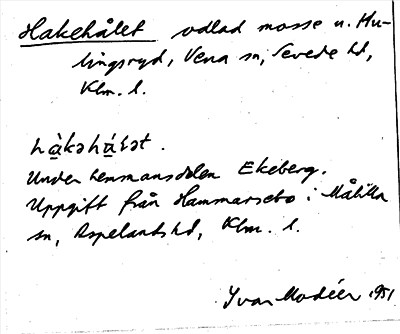 Hakehålet odlad mosse u. Hu-
lingsryd, Vena sn, Sevede hd,
Klm. l.
hàkəhá̱lət.
Under länsmansdelen Ekeberg.
Uppgift från Hammarsebo i Målilla
sn, Aspelands hd, Klm. l.
Yvar Modéer 1951